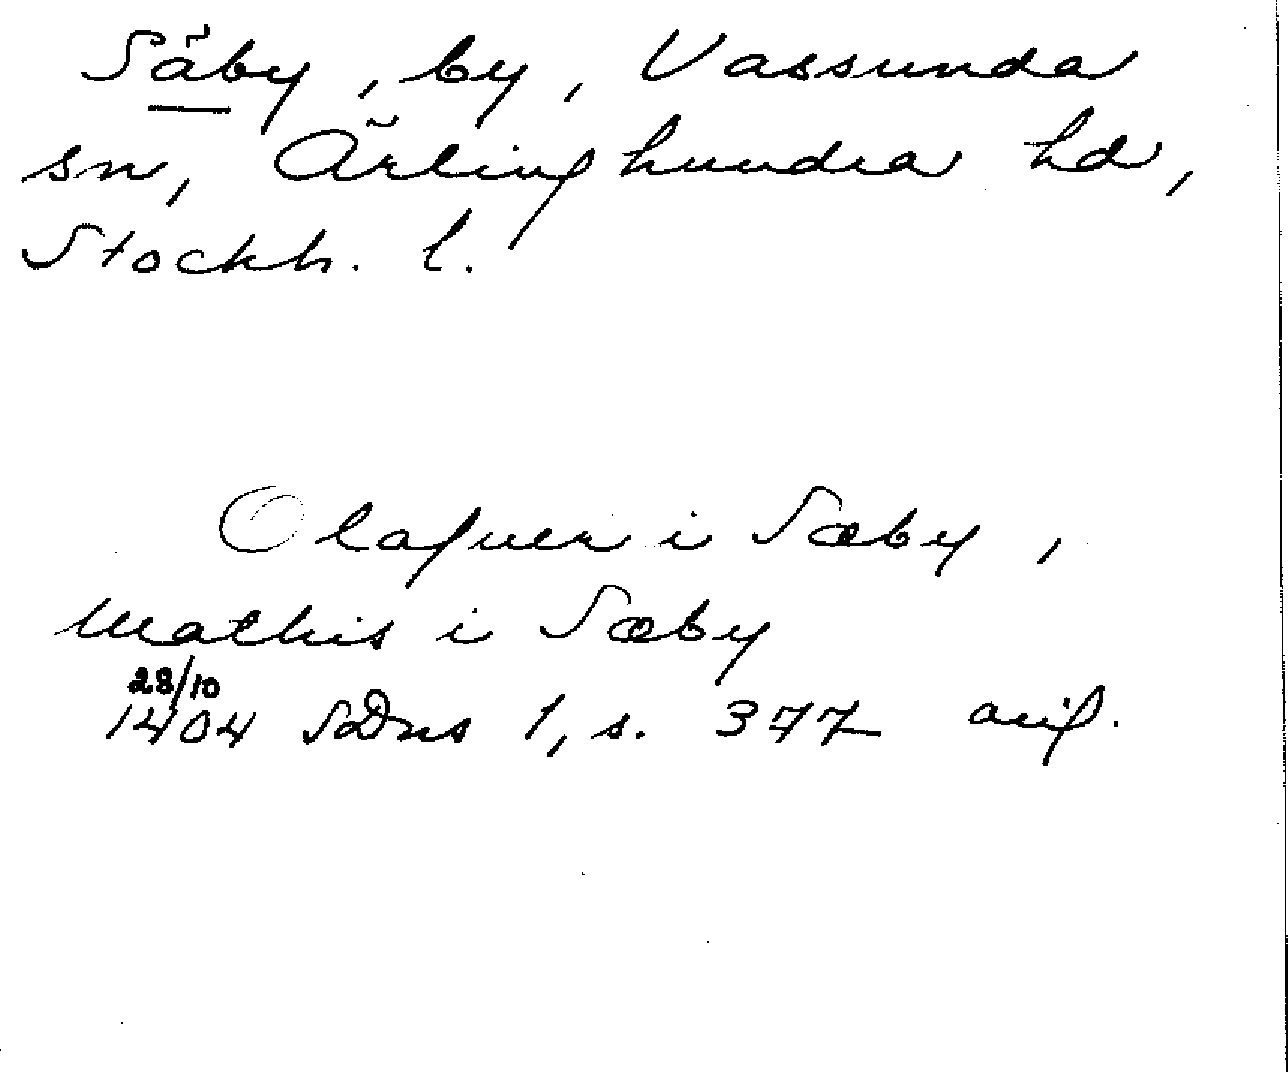 Säby, by, Vassunda
sn, Ärlinghundra hd,
Stockh. l.
Olafuer i Sæby,
Mathis i Sæby
28/10
1404 SDns 1, s. 377 avif.